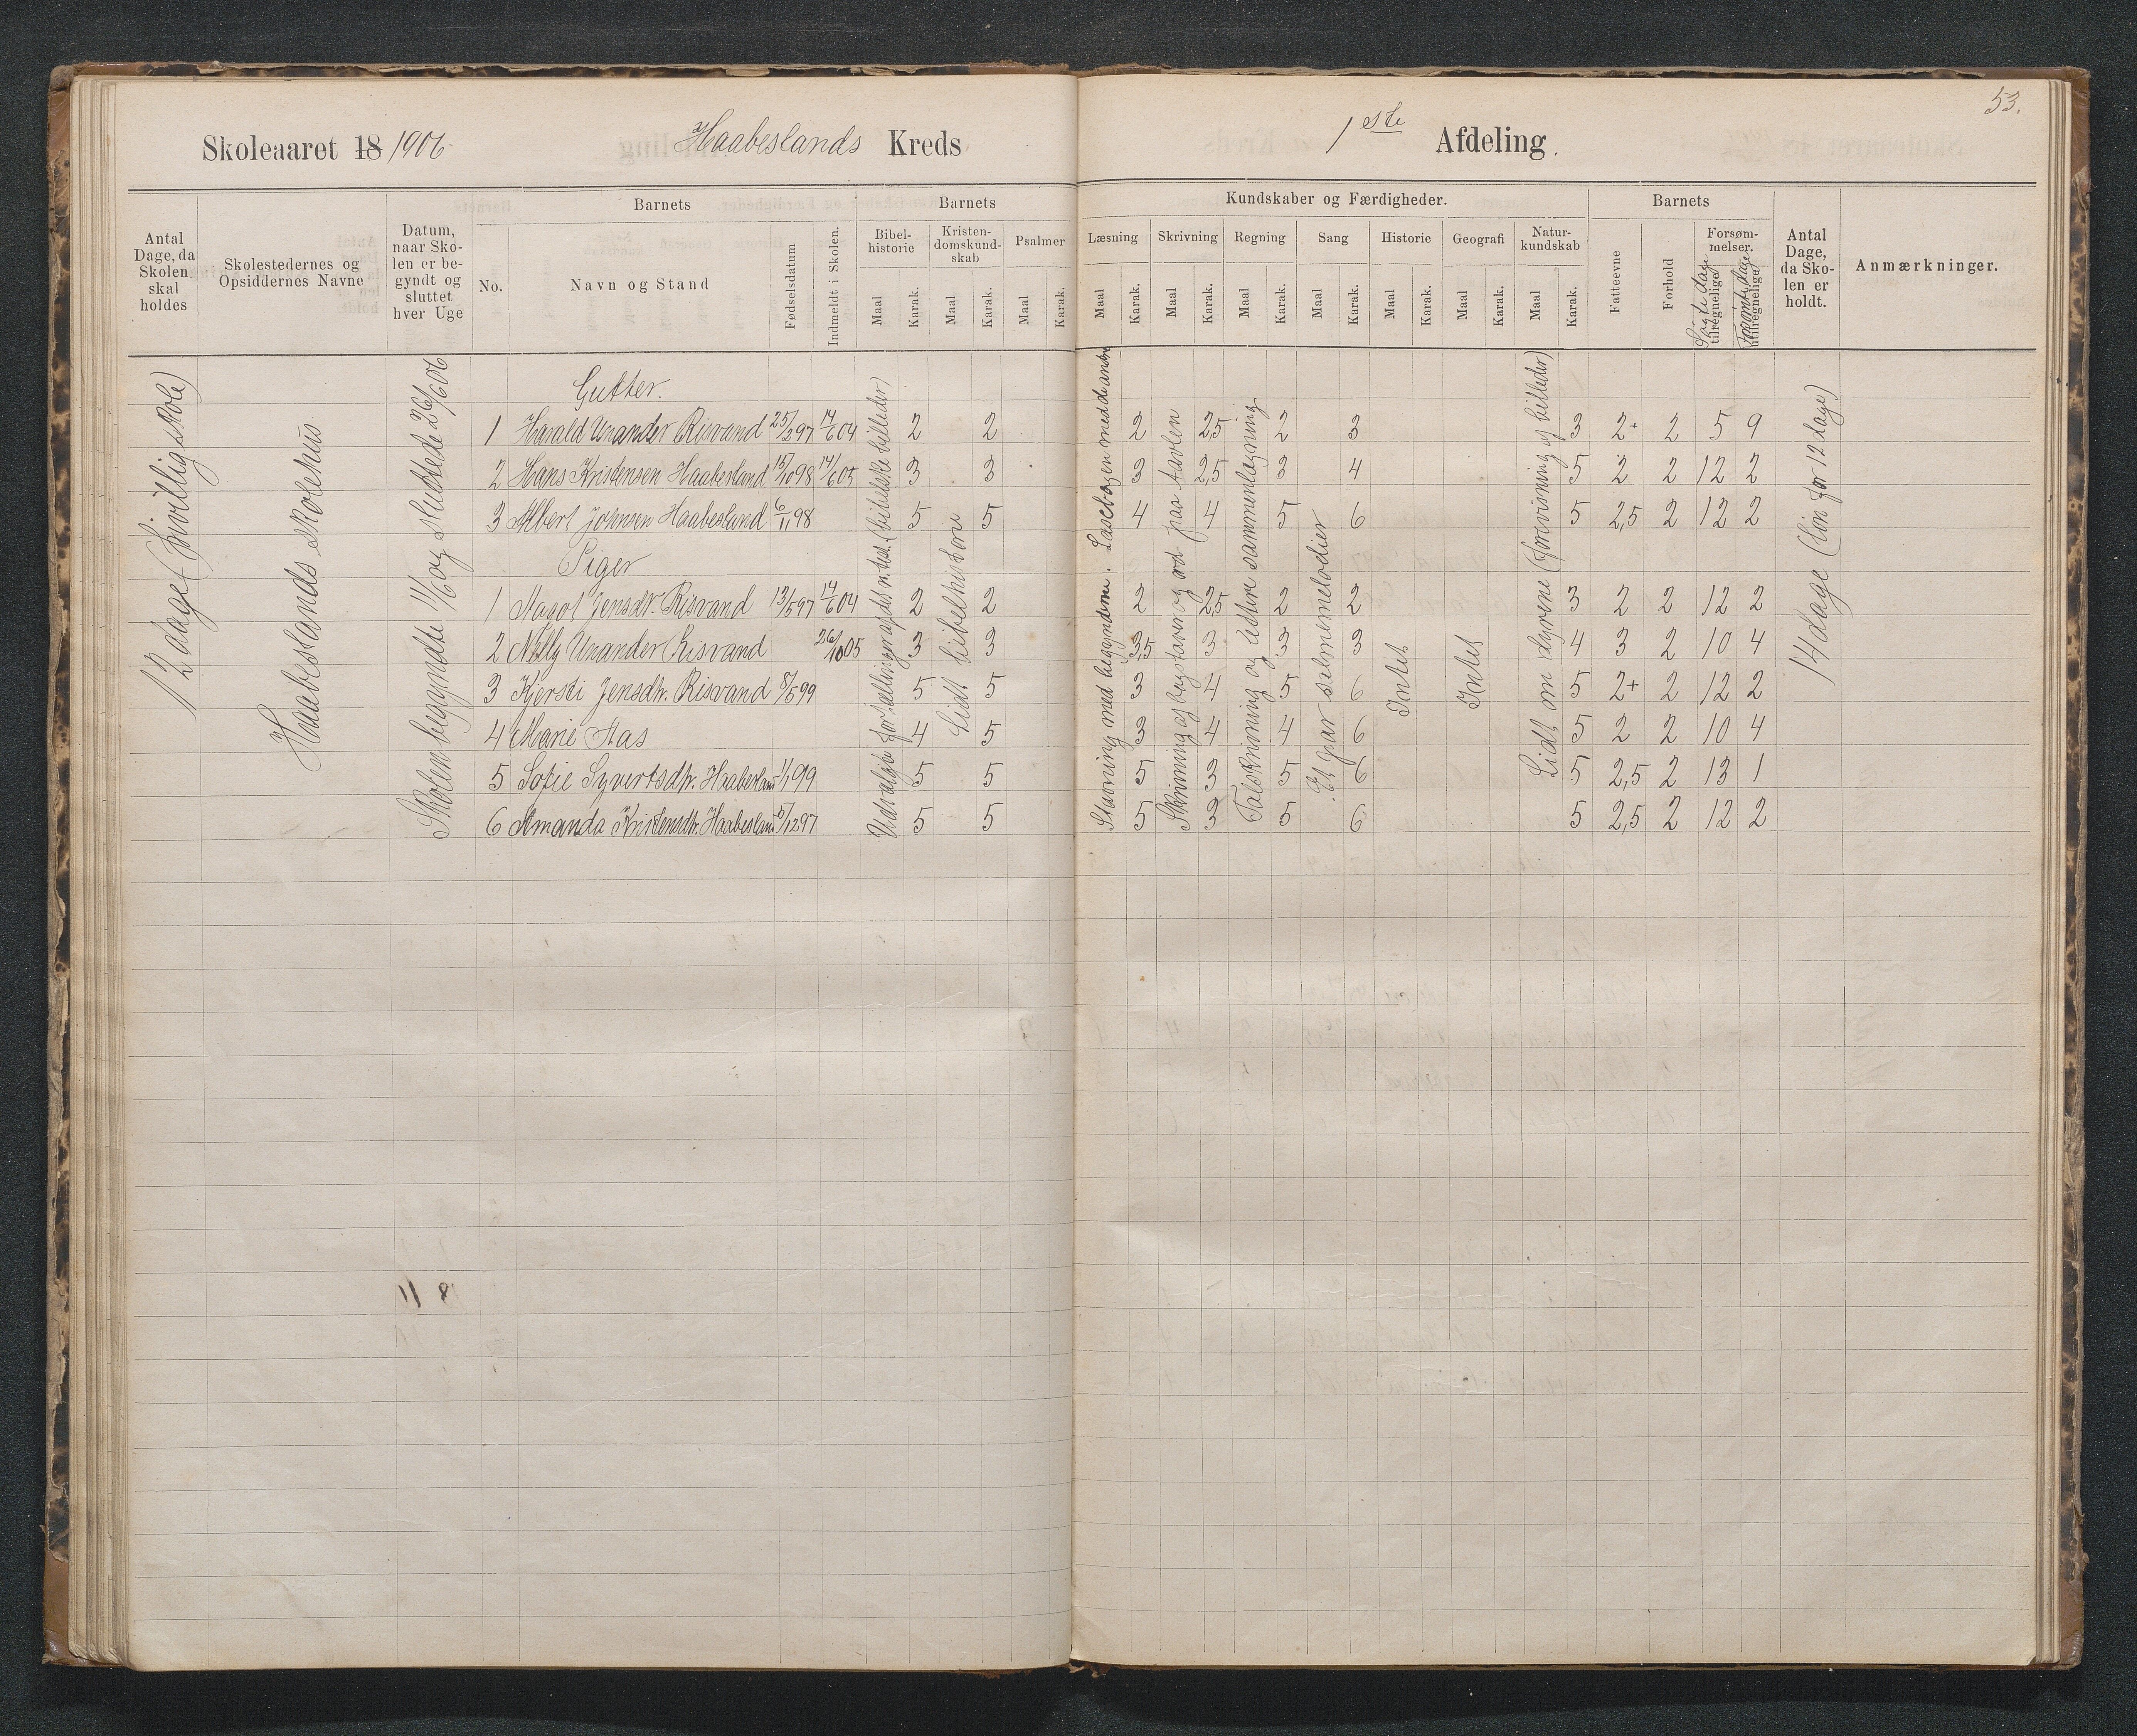 53.
Skoleaaret 18 1906 Haabeslands Kreds 1ste Afdeling.
Antal Dage, da Skolen skal holdes
Skolestedernes og Opsiddernes Navne
Datum, naar Skolen er begyndt og sluttet hver Uge
Barnets
No. Navn og Stand Fødselsdatum Indmeldt i Skolen.
Barnets
Bibelhistorie Maal Karak.
Kristendomskundskab Maal Karak.
Psalmer Maal Karak.
Kundskaber og Færdigheder.
Læsning Maal Karak.
Skrivning Maal Karak.
Regning Maal Karak.
Sang Maal Karak.
Historie Maal Karak.
Geografi Maal Karak.
Naturkundskab Maal Karak.
Barnets
Fatteevne Forhold
Forsømmelser. tilregnelige utilregnelige
Søgte dage Forsømte dage
Antal Dage, da Skolen er holdt.
Anmærkninger.
12 dage (frivillig skole)
Haabeslands skolehus
Skolen begyndte 11/6 og sluttede 26/6 06
Gutter.
1 Harald Unander Risvand 25/2 97 14/6 04 2 2 2 2,5 2 3 3 2+ 2 5 9
2 Hans Kristensen Haabesland 15/10 98 14/6 05 3 3 3 2,5 3 4 5 2 2 12 2
3 Albert Johnsen Haabesland 6/11 98 5 5 4 4 5 6 5 2,5 2 12 2
Piger
1 Aagot Jensdtr. Risvand 13/5 97 14/6 04 2 2 2 2,5 2 2 3 2 2 12 2
2 Nelly Unander Risvand 26/10 05 3 3 3,5 3 3 3 4 3 2 10 4
3 Kjersti Jensdtr. Risvand 8/5 99 5 5 3 4 5 6 5 2+ 2 12 2
4 Marie Aas 4 5 3 4 4 6 5 2 2 10 4
5 Sofie Syvertsdtr. Haabesland 1/1 99 5 5 5 3 5 6 5 2,5 2 13 1
6 Amanda Kristensdtr. Haabesland 5/12 97 5 5 5 3 5 6 5 2,5 2 12 2
Udvalgte fortællinger af det n. test. (bibelske billeder)
Lidt bibelhistorie
Stavning med begynderne. Læsebogen med de andre
Skrivning af bogstaver og ord paa tavlen
Talskrivning og lettere sammenlægning
Et par salmemelodier
Intet
Intet
Lidt om dyrene (forevisning af billeder)
14 dage (løn for 12 dage)